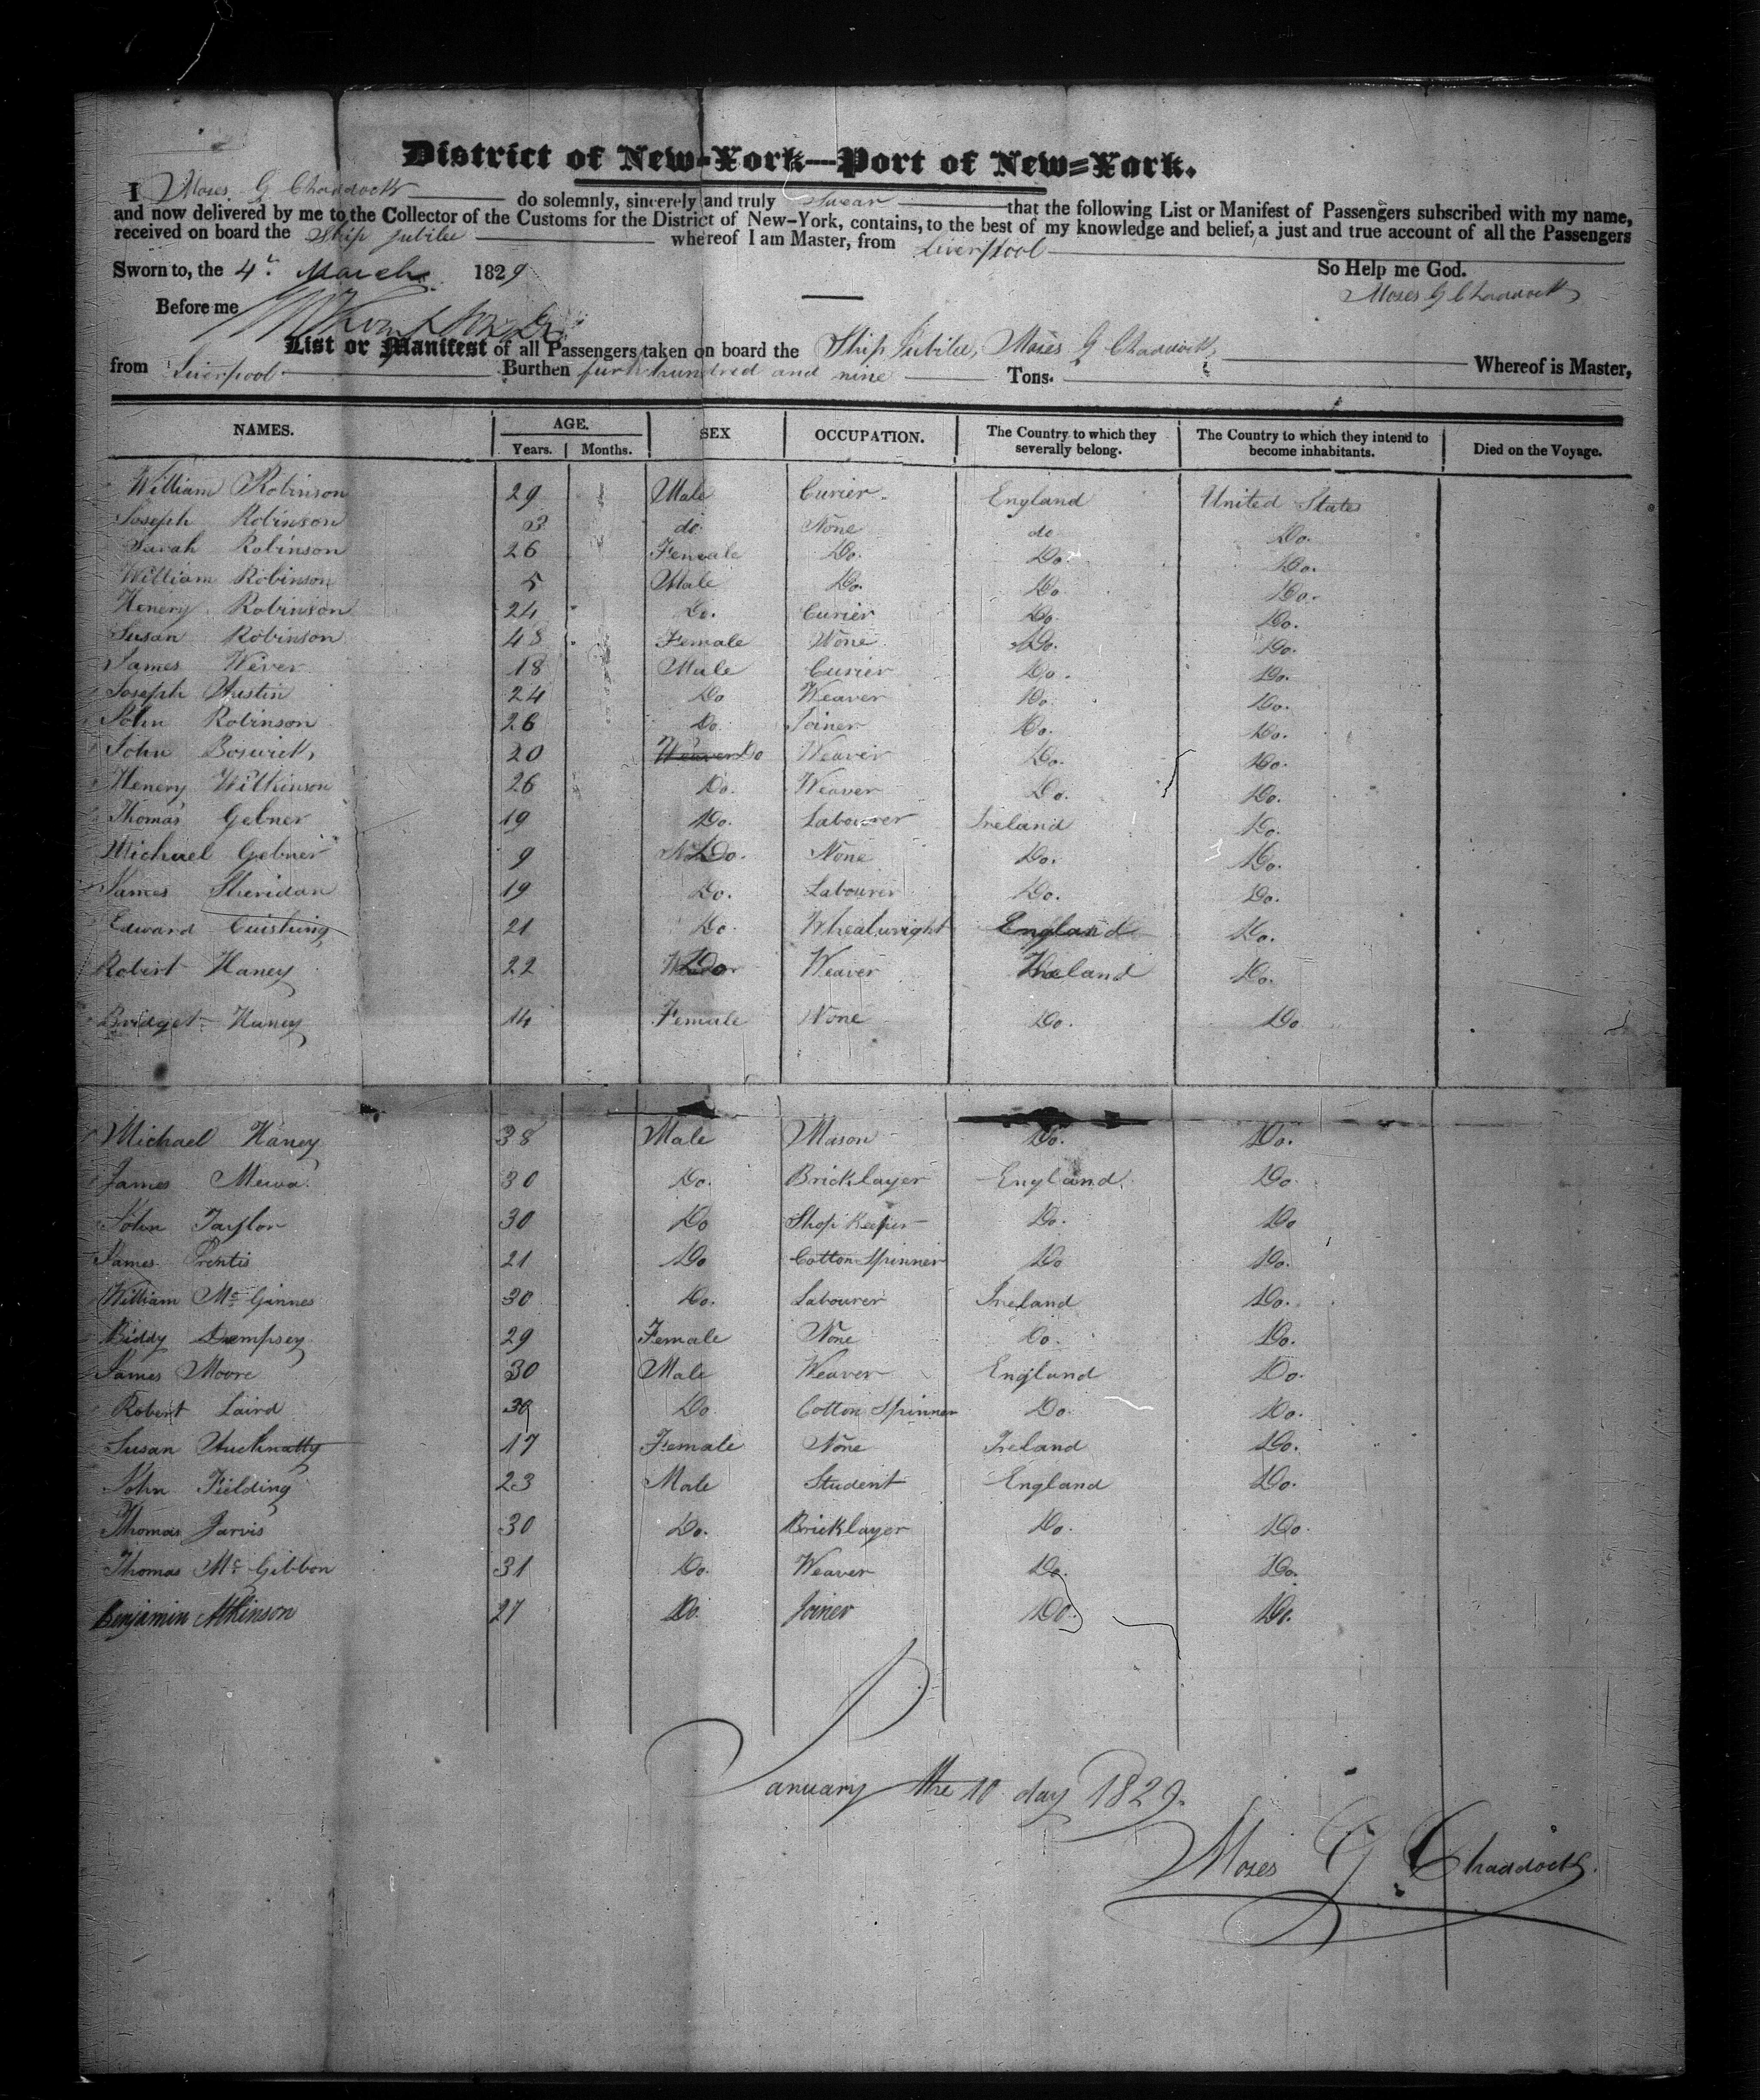 District of New-York—Port of New-York.
I Moses G Chaddock do solemnly, sincerely and truly Swear that the following List or Manifest of Passengers subscribed with my name,
and now delivered by me to the Collector of the Customs for the District of New-York, contains, to the best of my knowledge and belief, a just and true account of all the Passengers
received on board the Ship Jubilee whereof I am Master, from Liverpool
So Help me God.
Sworn to, the 4th March 1829
Moses G Chaddock
Before me
List or Manifest of all Passengers taken on board the Ship Jubilee, Moses G Chaddock Whereof is Master,
from Liverpool Burthen four hundred and nine Tons.
NAMES. AGE. Years. Months. SEX OCCUPATION. The Country to which they severally belong. The Country to which they intend to become inhabitants. Died on the Voyage.
William Robinson 29 Male Curier England United States
Joseph Robinson 3 do None do Do.
Sarah Robinson 26 Female Do. Do. Do.
William Robinson 5 Male Do. Do. Do.
Henery Robinson 24 Do. Curier Do. Do.
Susan Robinson 48 Female None Do. Do.
James Wever 18 Male Curier Do. Do.
Joseph Austin 24 Do Weaver Do. Do.
John Robinson 26 Do. Joiner Do. Do.
John Boswick 20 Weaver Do Weaver Do. Do.
Henery Wilkinson 26 Do. Weaver Do. Do.
Thomas Gebner 19 Do. Labourer Ireland Do.
Michael Gebner 9 Do. None Do. Do.
James Sheridan 19 Do. Labourer Do. Do.
Edward Cuishing 21 Do. Whealwright England Do.
Robert Haney 22 Do Weaver Ireland Do.
Bridget Haney 14 Female None Do. Do
Michael Haney 38 Male Mason Do. Do.
James 30 Do. Bricklayer England Do.
John Taylor 30 Do Shop Keeper Do. Do
James Prentis 21 Do Cotton Spinner Do Do.
William Mc Ginnes 30 Do. Labourer Ireland Do.
Biddy Dempsey 29 Female None Do. Do.
James Moore 30 Male Weaver England Do.
Robert Laird 39 Do Cotton Spinner Do Do.
Susan 17 Female None Ireland Do.
John Fielding 23 Male Student England Do.
Thomas Jarvis 30 Do. Bricklayer Do. Do.
Thomas Mc Gibbon 31 Do. Weaver Do. Do.
Benjamin Atkinson 27 Do. Joiner Do. Do.
January the 10 day 1829.
Moses G Chaddock